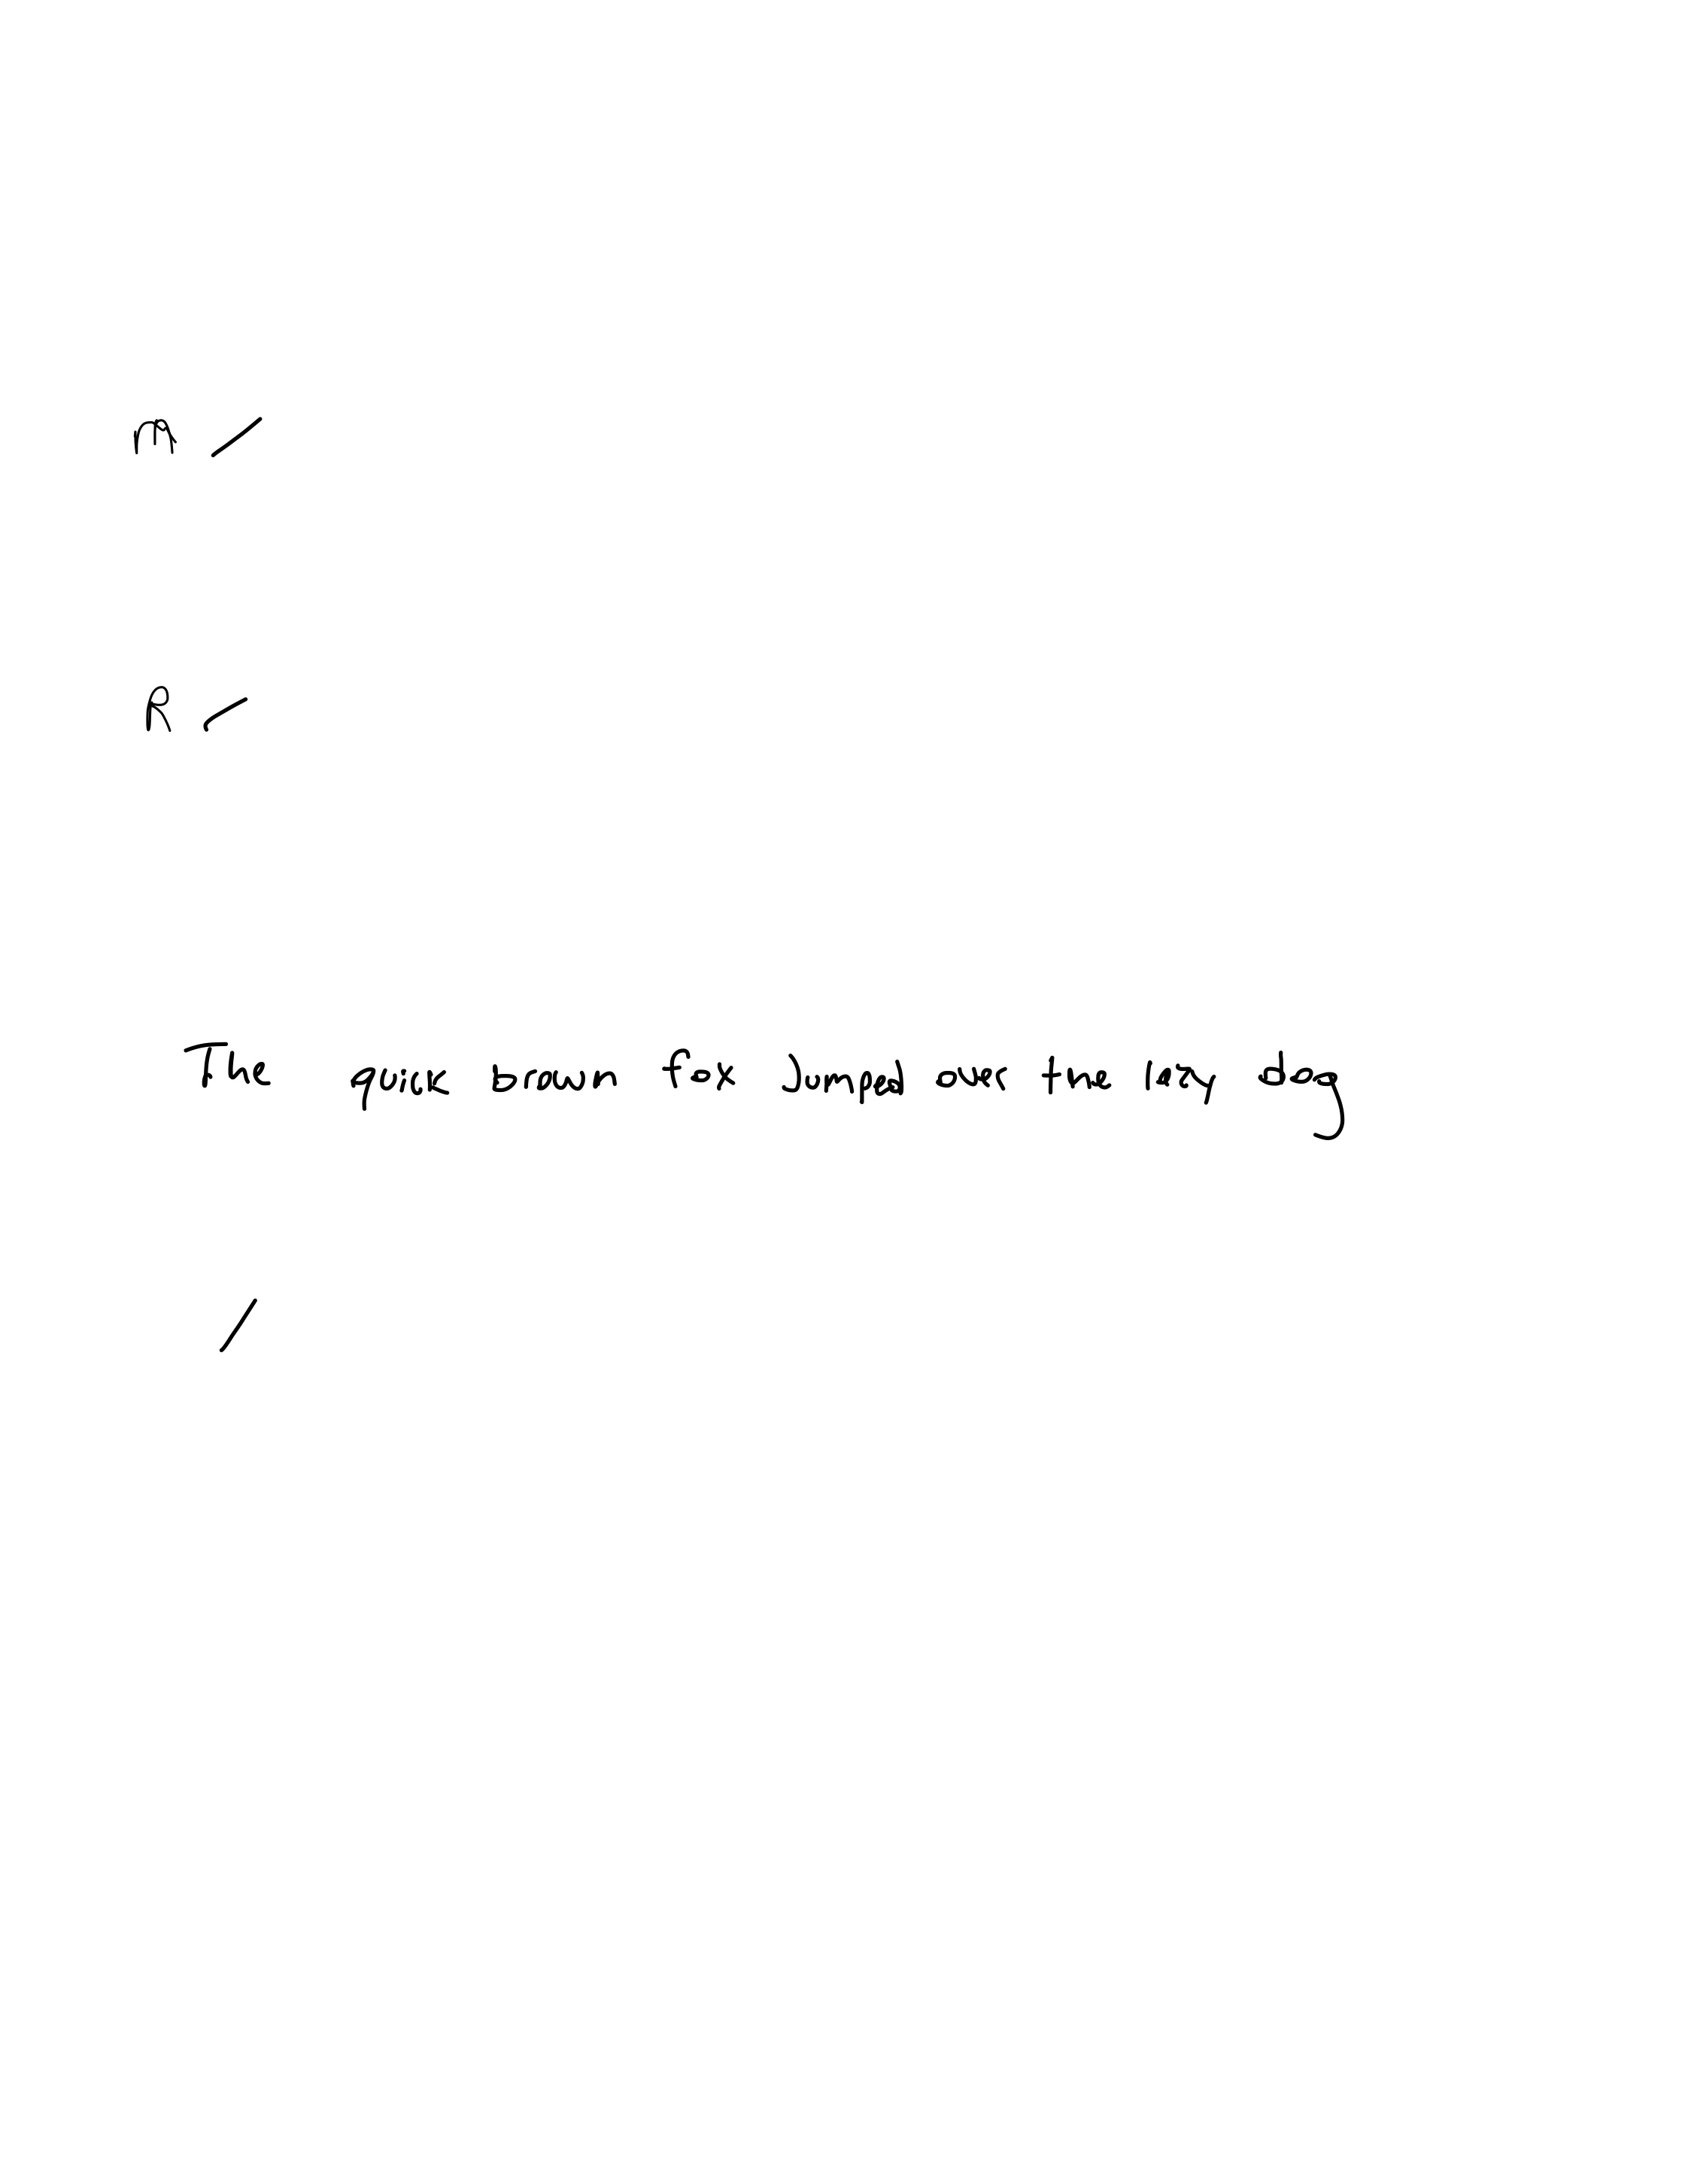 m /
R /
The quick brown fox jumped over the lazy dog
/